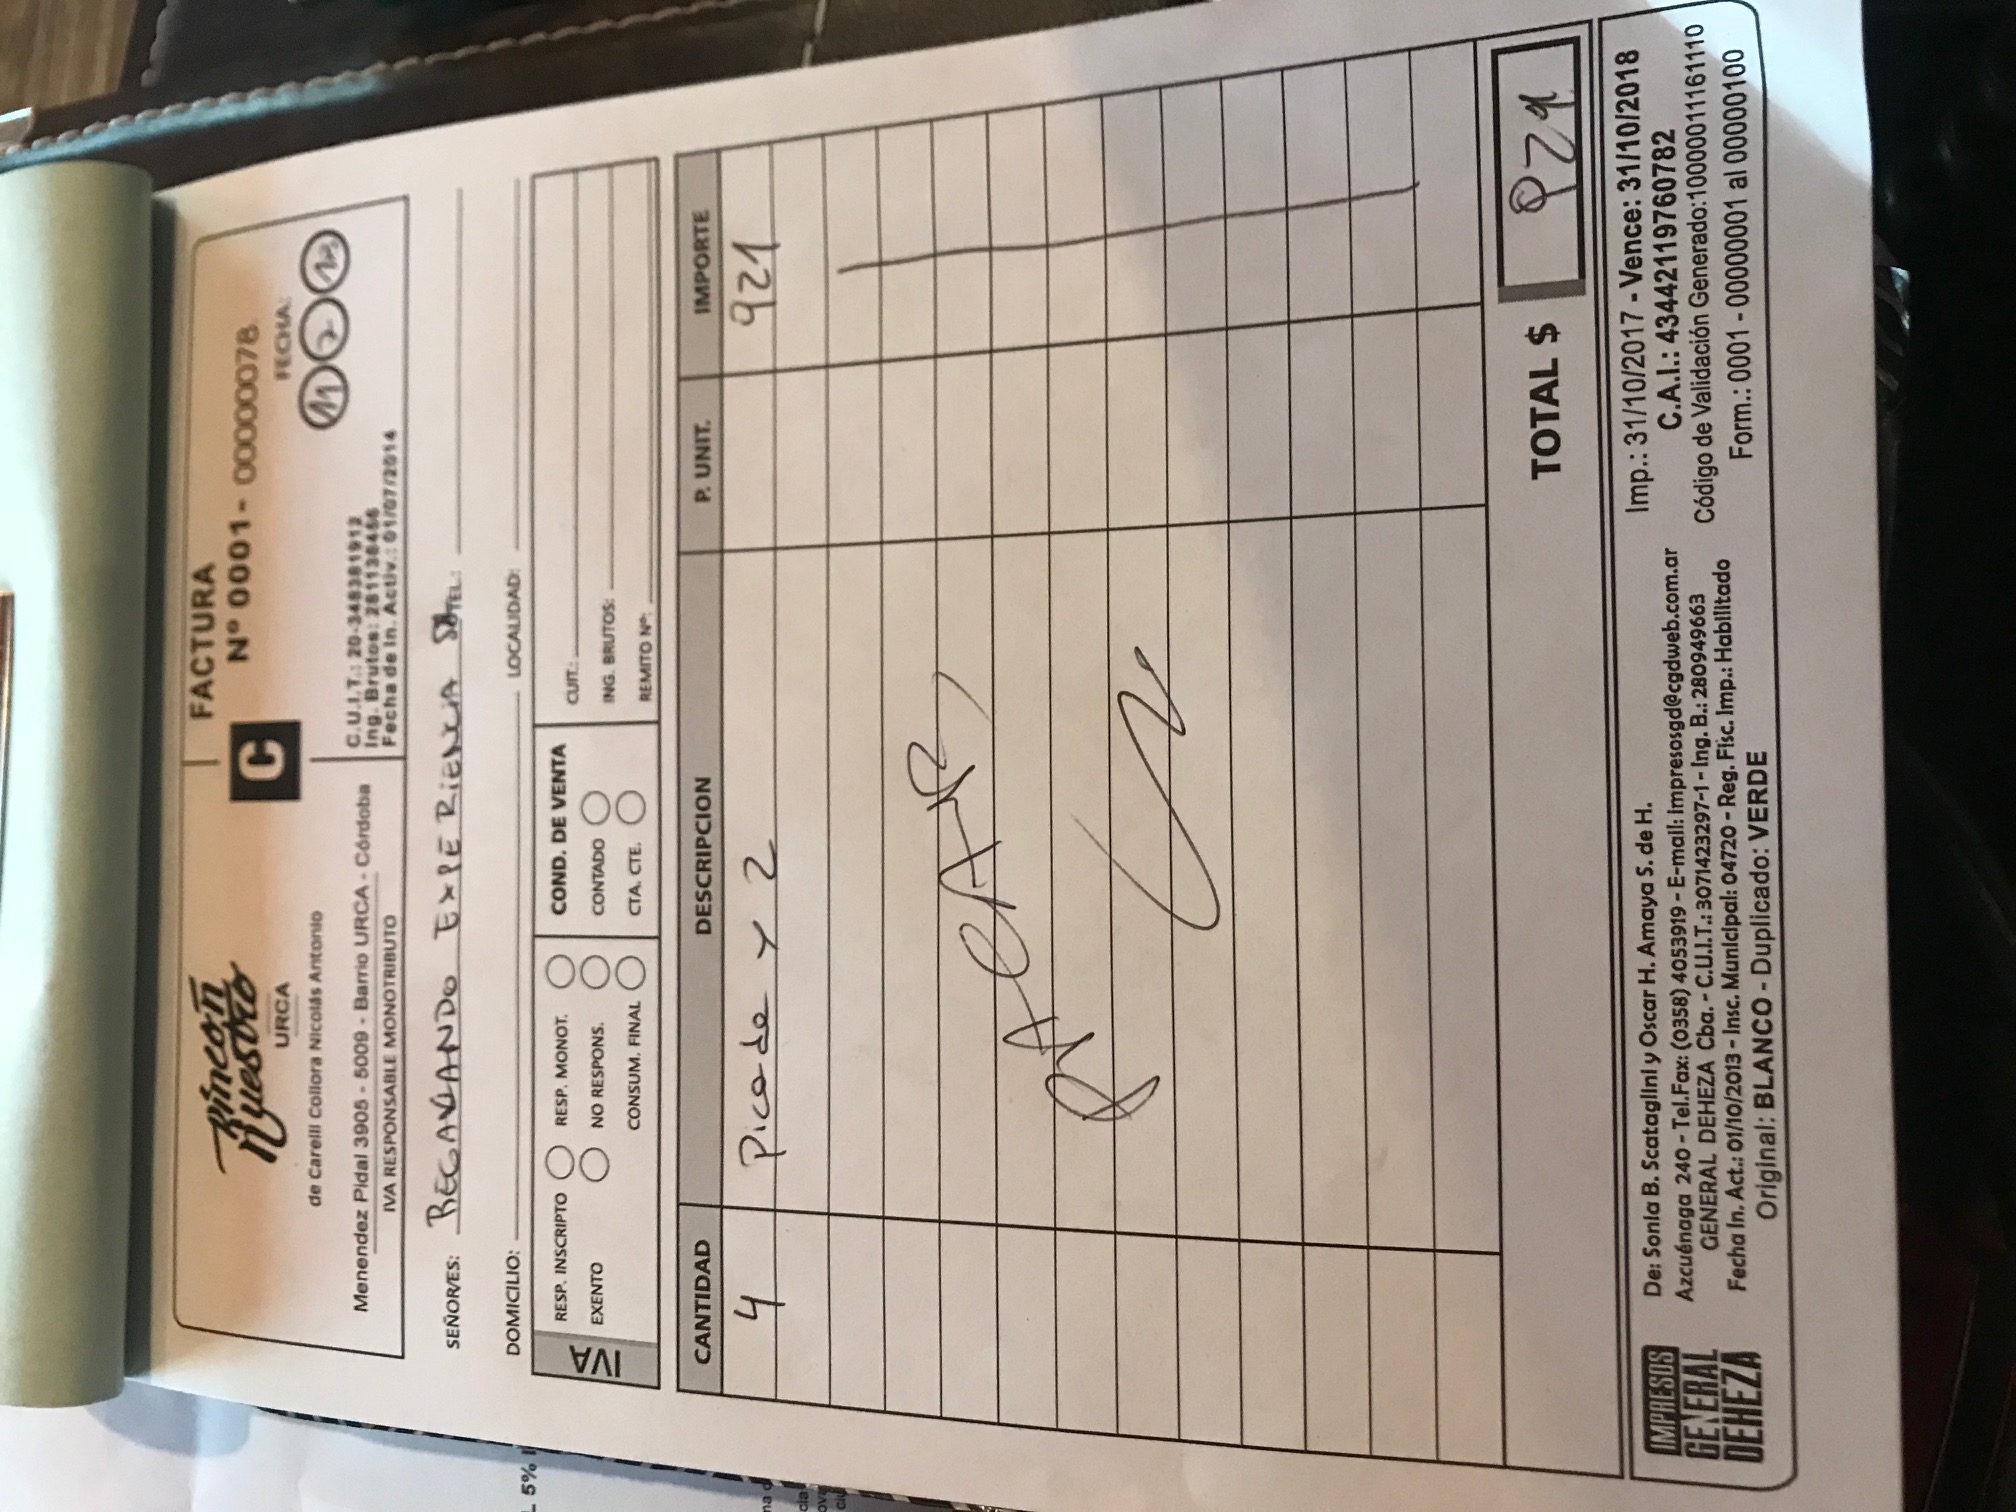 Rincón
Nuestro
URCA
de Carelli Collora Nicolás Antonio
Menendez Pidal 3905 - 5009 - Barrio URCA - Córdoba
IVA RESPONSABLE MONOTRIBUTO
C
FACTURA
Nº 0001 - 00000078
FECHA:
11 2
C.U.I.T.: 20-348381912
Ing. Brutos: 281136456
Fecha de In. Activ.: 01/07/2014
SEÑOR/ES: REGALANDO EXPERIENCIA TEL.:
DOMICILIO: LOCALIDAD:
IVA
RESP. INSCRIPTO RESP. MONOT.
EXENTO NO RESPONS.
CONSUM. FINAL
COND. DE VENTA
CONTADO
CTA. CTE.
CUIT.:
ING. BRUTOS:
REMITO Nº:
CANTIDAD DESCRIPCION P. UNIT. IMPORTE
4 Picada x 2 921
PAGADO
TOTAL $ 921
IMPRESOS
GENERAL
DEHEZA
De: Sonia B. Scataglini y Oscar H. Amaya S. de H.
Azcuénaga 240 - Tel.Fax: (0358) 4053919 - E-mail: impresosgd@cgdweb.com.ar
GENERAL DEHEZA Cba. - C.U.I.T.: 3071423297-1 - Ing. B.: 280949663
Fecha In. Act.: 01/10/2013 - Insc. Municipal: 04720 - Reg. Fisc. Imp.: Habilitado
Original: BLANCO - Duplicado: VERDE
Imp.: 31/10/2017 - Vence: 31/10/2018
C.A.I.: 43442119760782
Código de Validación Generado:1000001116111​0
Form.: 0001 - 00000001 al 00000100
L 5%